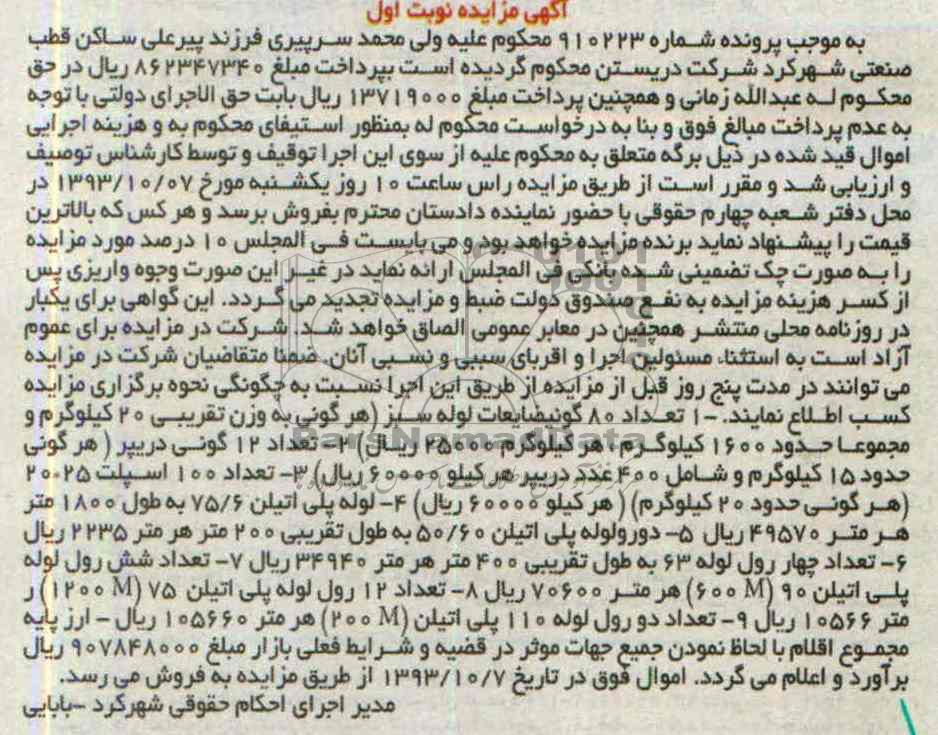 آگهی مزایده نوبت اول
به موجب پرونده شماره ۹۱۰۲۲۳ محکوم علیه ولی محمد سرپیری فرزند پیرعلی ساکن قطب
صنعتی شهرکرد شرکت دریستن محکوم گردیده است بپرداخت مبلغ ۸۶۲۳۴۷۳۴۰ ریال در حق
محکوم له عبدالله زمانی و همچنین پرداخت مبلغ ۱۳۷۱۹۰۰۰ ریال بابت حق الاجرای دولتی با توجه
به عدم پرداخت مبالغ فوق و بنا به درخواست محکوم له بمنظور استیفای محکوم به و هزینه اجرایی
اموال قید شده در ذیل برگه متعلق به محکوم علیه از سوی این اجرا توقیف و توسط کارشناس توصیف
و ارزیابی شد و مقرر است از طریق مزایده راس ساعت ۱۰ روز یکشنبه مورخ ۱۳۹۳/۱۰/۰۷ در
محل دفتر شعبه چهارم حقوقی با حضور نماینده دادستان محترم بفروش برسد و هر کس که بالاترین
قیمت را پیشنهاد نماید برنده مزایده خواهد بود و می بایست فی المجلس ۱۰ درصد مورد مزایده
را به صورت چک تضمینی شده بانکی فی المجلس ارائه نماید در غیر این صورت وجوه واریزی پس
از کسر هزینه مزایده به نفع صندوق دولت ضبط و مزایده تجدید می گردد. این گواهی برای یکبار
در روزنامه محلی منتشر همچنین در معابر عمومی الصاق خواهد شد. شرکت در مزایده برای عموم
آزاد است به استثناء مسئولین اجرا و اقربای سببی و نسبی آنان. ضمنا متقاضیان شرکت در مزایده
می توانند در مدت پنج روز قبل از مزایده از طریق این اجرا نسبت به چگونگی نحوه برگزاری مزایده
کسب اطلاع نمایند. ۱- تعداد ۸۰ گونیضایعات لوله سبز (هر گونی به وزن تقریبی ۲۰ کیلوگرم و
مجموعا حدود ۱۶۰۰ کیلوگرم، هر کیلوگرم ۲۵۰۰۰ ریال) ۲- تعداد ۱۲ گونی دریپر (هر گونی
حدود ۱۵ کیلوگرم و شامل ۴۰۰ عدد دریپر هر کیلو ۶۰۰۰۰ ریال) ۳- تعداد ۱۰۰ اسپلت ۲۵-۲۰
(هر گونی حدود ۲۰ کیلوگرم) (هر کیلو ۶۰۰۰۰ ریال) ۴- لوله پلی اتیلن ۷۵/۶ به طول ۱۸۰۰ متر
هر متر ۴۹۵۷۰ ریال ۵- دورولوله پلی اتیلن ۵۰/۶۰ به طول تقریبی ۲۰۰ متر هر متر ۲۲۳۵ ریال
۶- تعداد چهار رول لوله ۶۳ به طول تقریبی ۴۰۰ متر هر متر ۳۴۹۴۰ ریال ۷- تعداد شش رول لوله
پلی اتیلن ۹۰ (۶۰۰ M) هر متر ۷۰۶۰۰ ریال ۸- تعداد ۱۲ رول لوله پلی اتیلن ۷۵ (۱۲۰۰ M) ر
متر ۱۰۵۶۶ ریال ۹- تعداد دو رول لوله ۱۱۰ پلی اتیلن (۲۰۰ M) هر متر ۱۰۵۶۶۰ ریال - ارز پایه
مجموع اقلام با لحاظ نمودن جمیع جهات موثر در قضیه و شرایط فعلی بازار مبلغ ۹۰۷۸۴۸۰۰۰ ریال
برآورد و اعلام می گردد. اموال فوق در تاریخ ۱۳۹۳/۱۰/۷ از طریق مزایده به فروش می رسد.
مدیر اجرای احکام حقوقی شهرکرد -بابایی
ParsNamadData